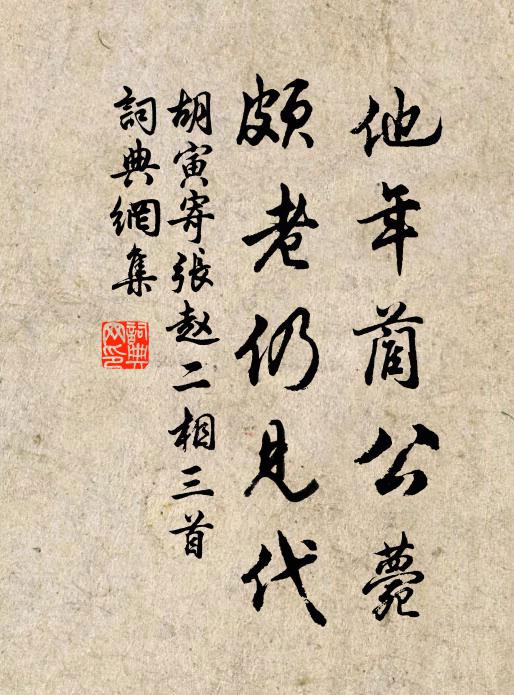 他年藺公薨
頗老仍見代
胡寅寄張趙二相三首
詞典網集
詞典網印